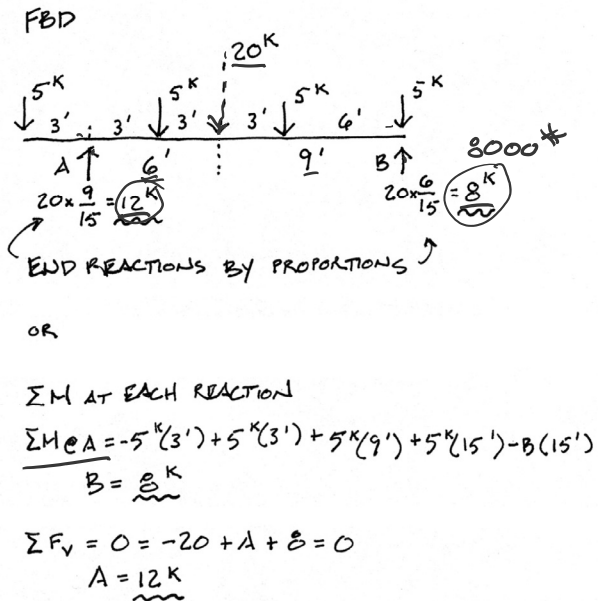 FBD
20K
5K 5K 5K 5K
3' 3' 3' 3' 6'
8000#
A 6' 9' B
20x 9/15 = 12K 20x 6/15 = 8K
END REACTIONS BY PROPORTIONS
OR
ΣM AT EACH REACTION
ΣM@A = -5K(3') + 5K(3') + 5K(9') + 5K(15') - B(15')
B = 8K
ΣFv = 0 = -20 + A + 8 = 0
A = 12K